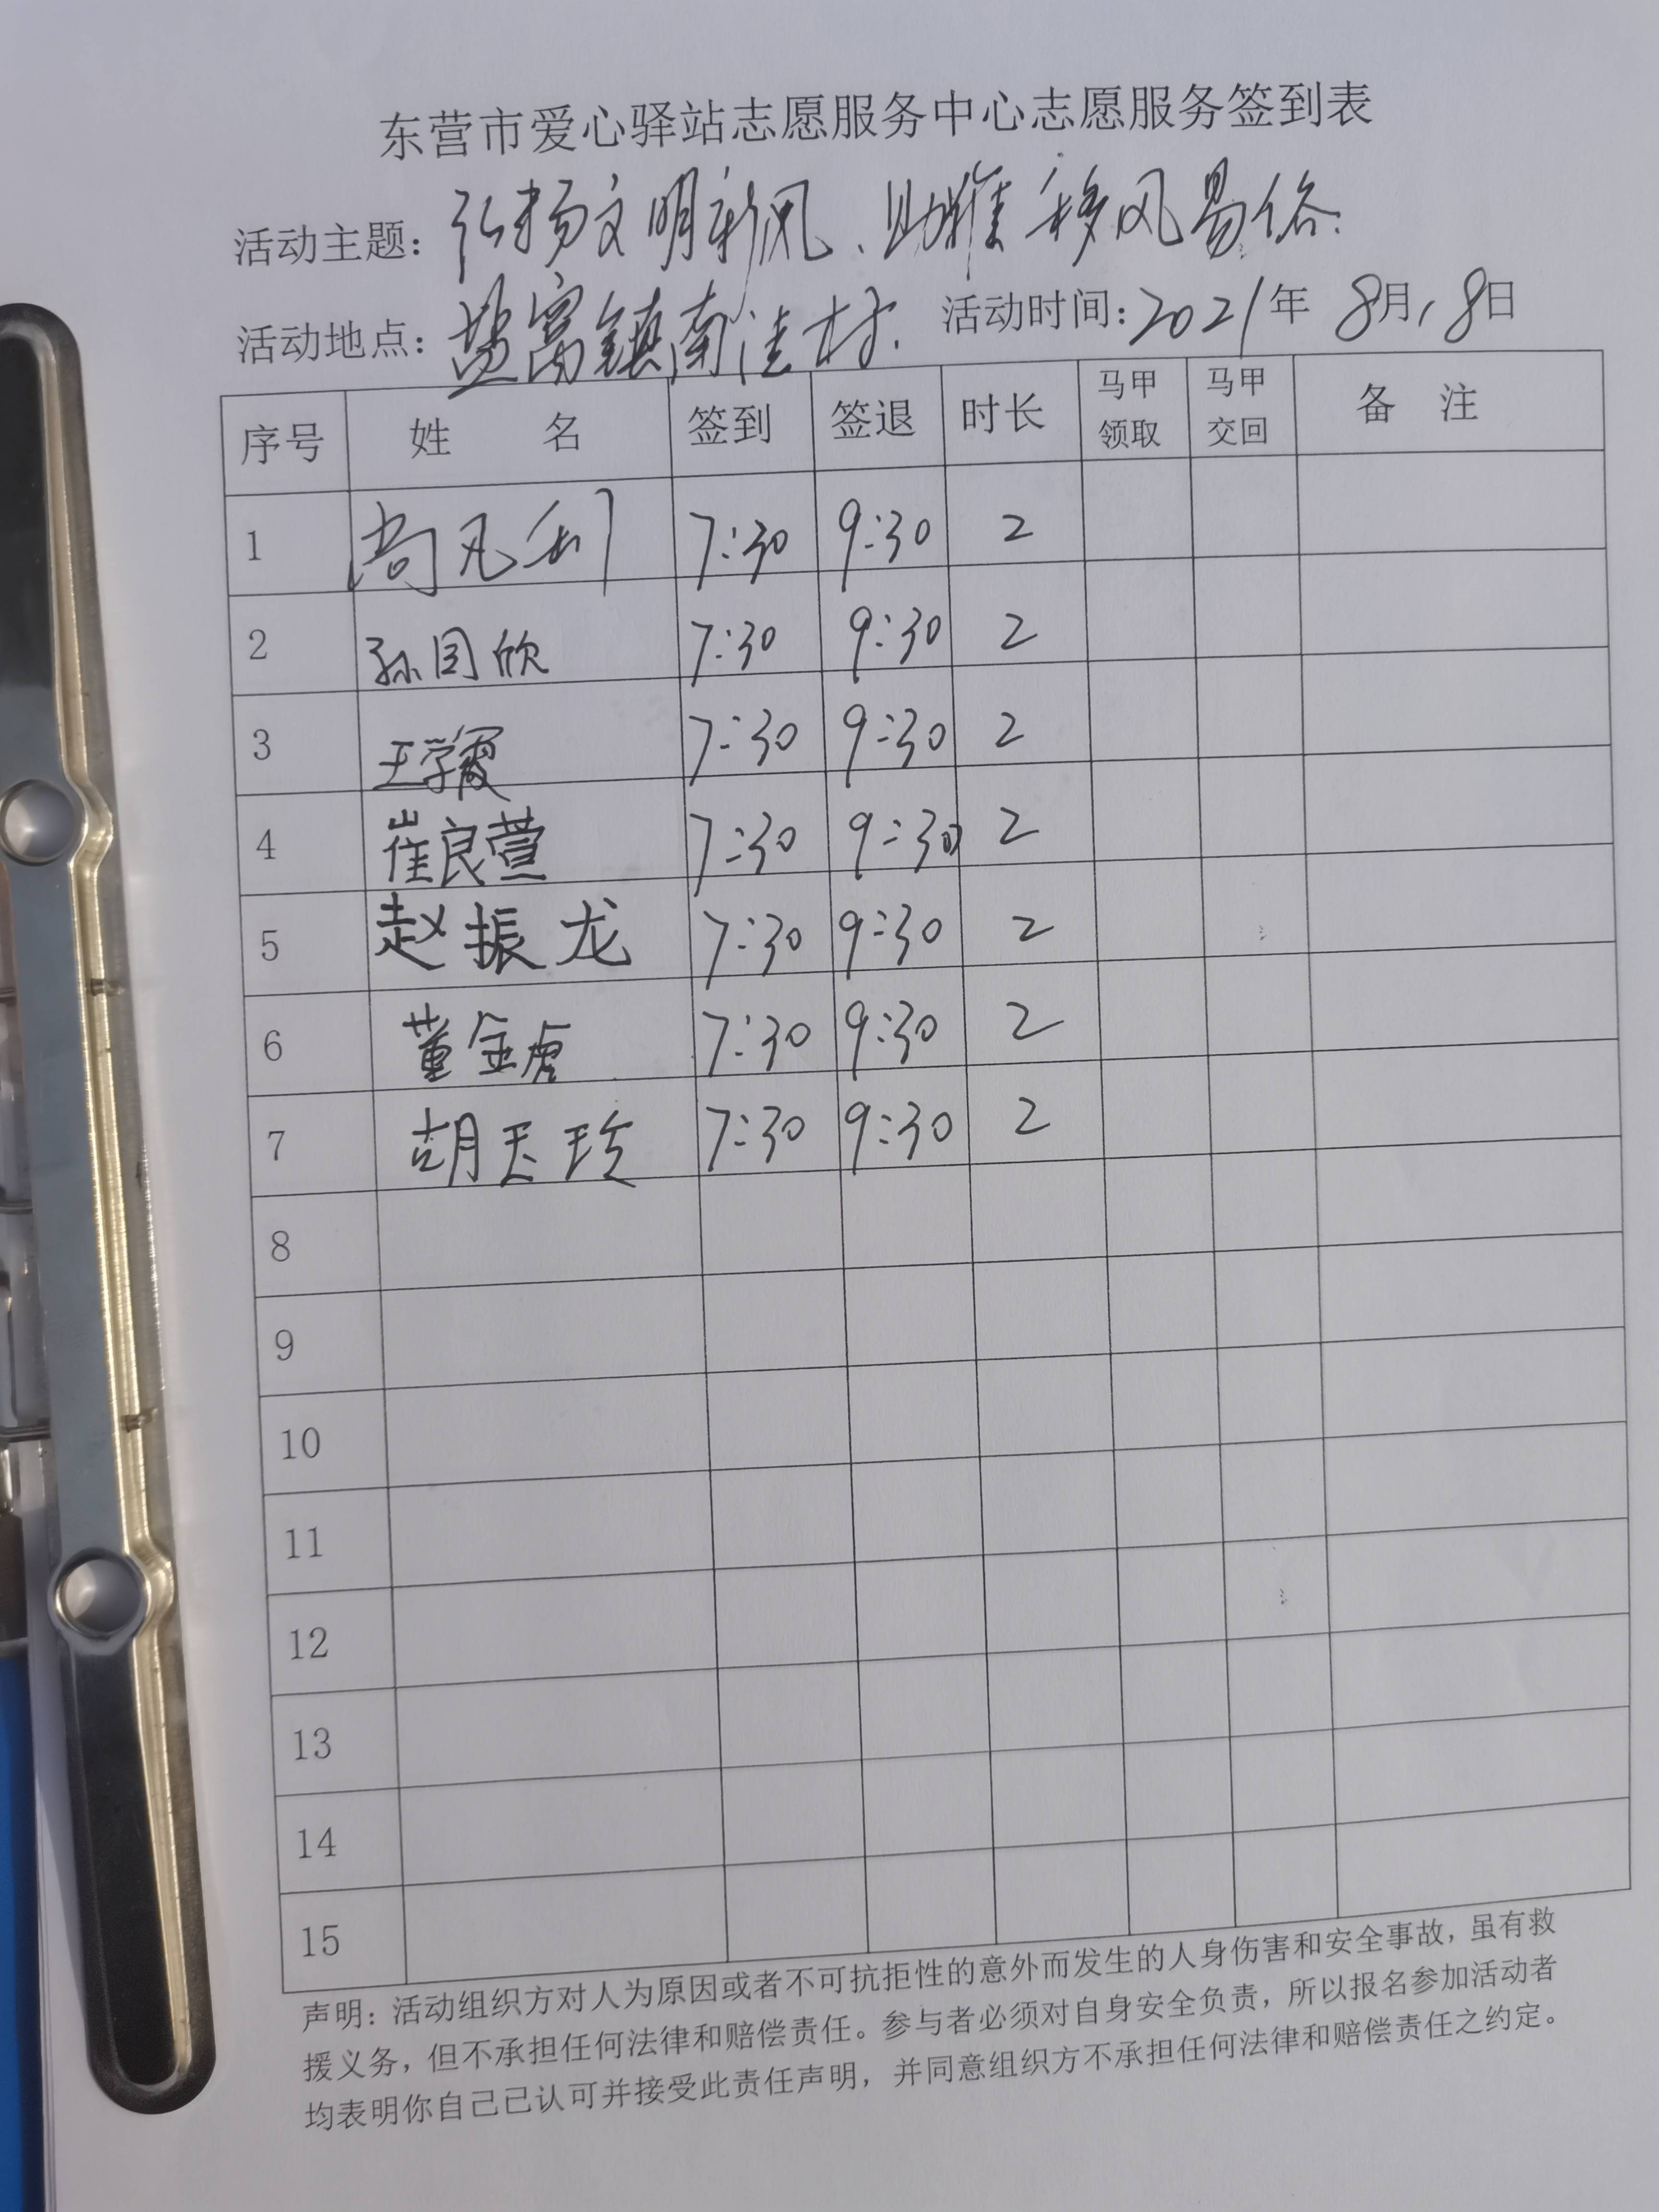 东营市爱心驿站志愿服务中心志愿服务签到表
活动主题：弘扬文明新风、助推移风易俗.
活动地点：盐窝镇南洼村. 活动时间：2021年 8月18日
序号 姓名 签到 签退 时长 马甲领取 马甲交回 备注
1 尚凡利 7:30 9:30 2
2 孙国欣 7:30 9:30 2
3 王学霞 7:30 9:30 2
4 崔良萱 7:30 9:30 2
5 赵振龙 7:30 9:30 2
6 董金虎 7:30 9:30 2
7 胡玉玲 7:30 9:30 2
8
9
10
11
12
13
14
15
声明：活动组织方对人为原因或者不可抗拒性的意外而发生的人身伤害和安全事故，虽有救
援义务，但不承担任何法律和赔偿责任。参与者必须对自身安全负责，所以报名参加活动者
均表明你自己已认可并接受此责任声明，并同意组织方不承担任何法律和赔偿责任之约定。